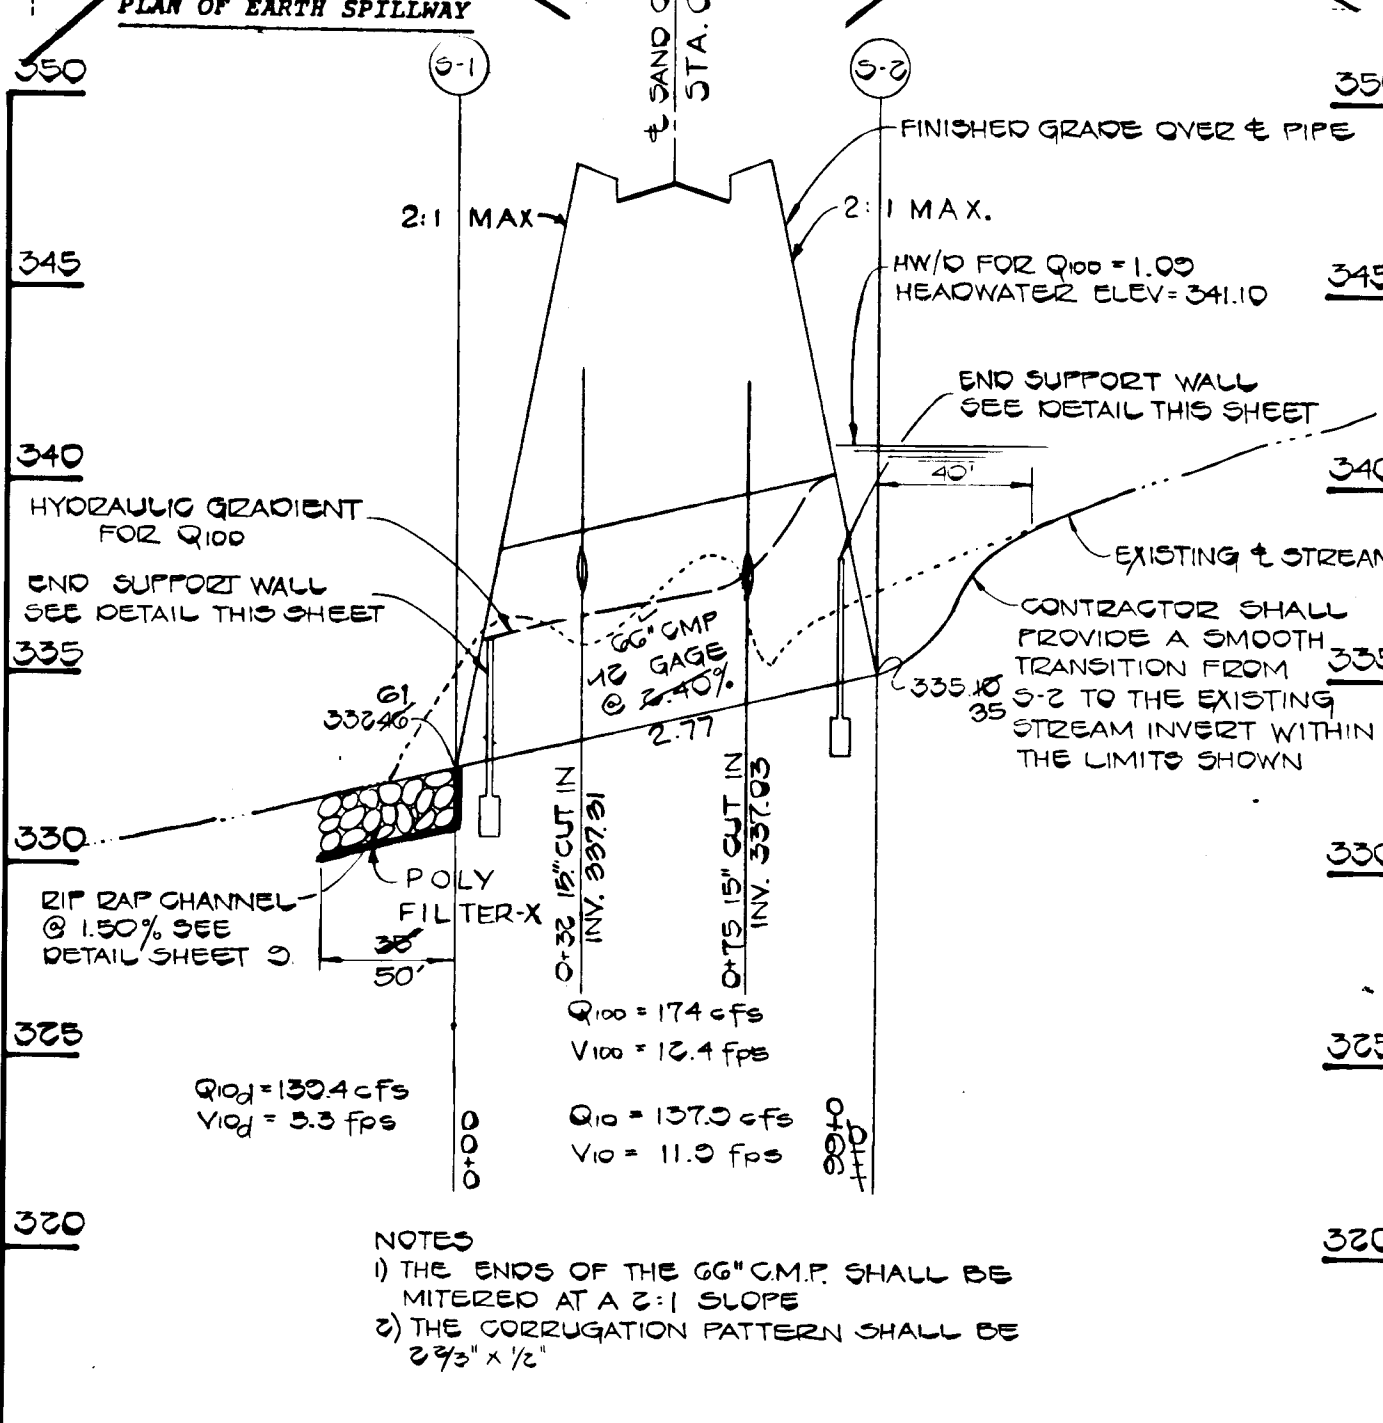 PLAN OF EARTH SPILLWAY
S-1
S-2
℄ SAND
STA.
350
345
340
335
330
325
320
350
345
340
335
330
325
320
FINISHED GRADE OVER ℄ PIPE
2:1 MAX
2:1 MAX.
HW/D FOR Q100 = 1.09
HEADWATER ELEV = 341.10
END SUPPORT WALL
SEE DETAIL THIS SHEET
40'
HYDRAULIC GRADIENT
FOR Q100
END SUPPORT WALL
SEE DETAIL THIS SHEET
EXISTING ℄ STREAM
CONTRACTOR SHALL
PROVIDE A SMOOTH
TRANSITION FROM
S-2 TO THE EXISTING
STREAM INVERT WITHIN
THE LIMITS SHOWN
66" CMP
12 GAGE
@ 2.40%
2.77
61
332.46
335.10
35
RIP RAP CHANNEL
@ 1.50% SEE
DETAIL SHEET 9
POLY
FILTER-X
35'
50'
0+32 15" CUT IN
INV. 337.31
0+75 15" CUT IN
INV. 337.03
Q100 = 174 cfs
V100 = 12.4 fps
Q10d = 139.4 cfs
V10d = 3.3 fps
Q10 = 137.9 cfs
V10 = 11.9 fps
0+00
0+99
NOTES
1) THE ENDS OF THE 66" C.M.P. SHALL BE
MITERED AT A 2:1 SLOPE
2) THE CORRUGATION PATTERN SHALL BE
2 2/3" x 1/2"